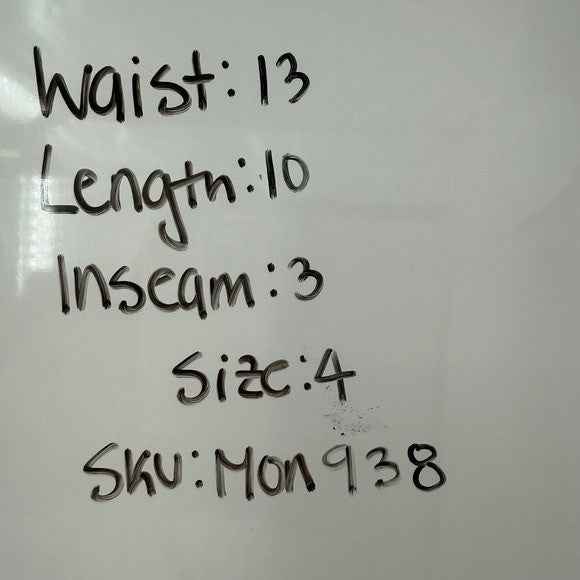 Waist: 13
Length: 10
Inseam: 3
Size: 4
SKU: Mon 938